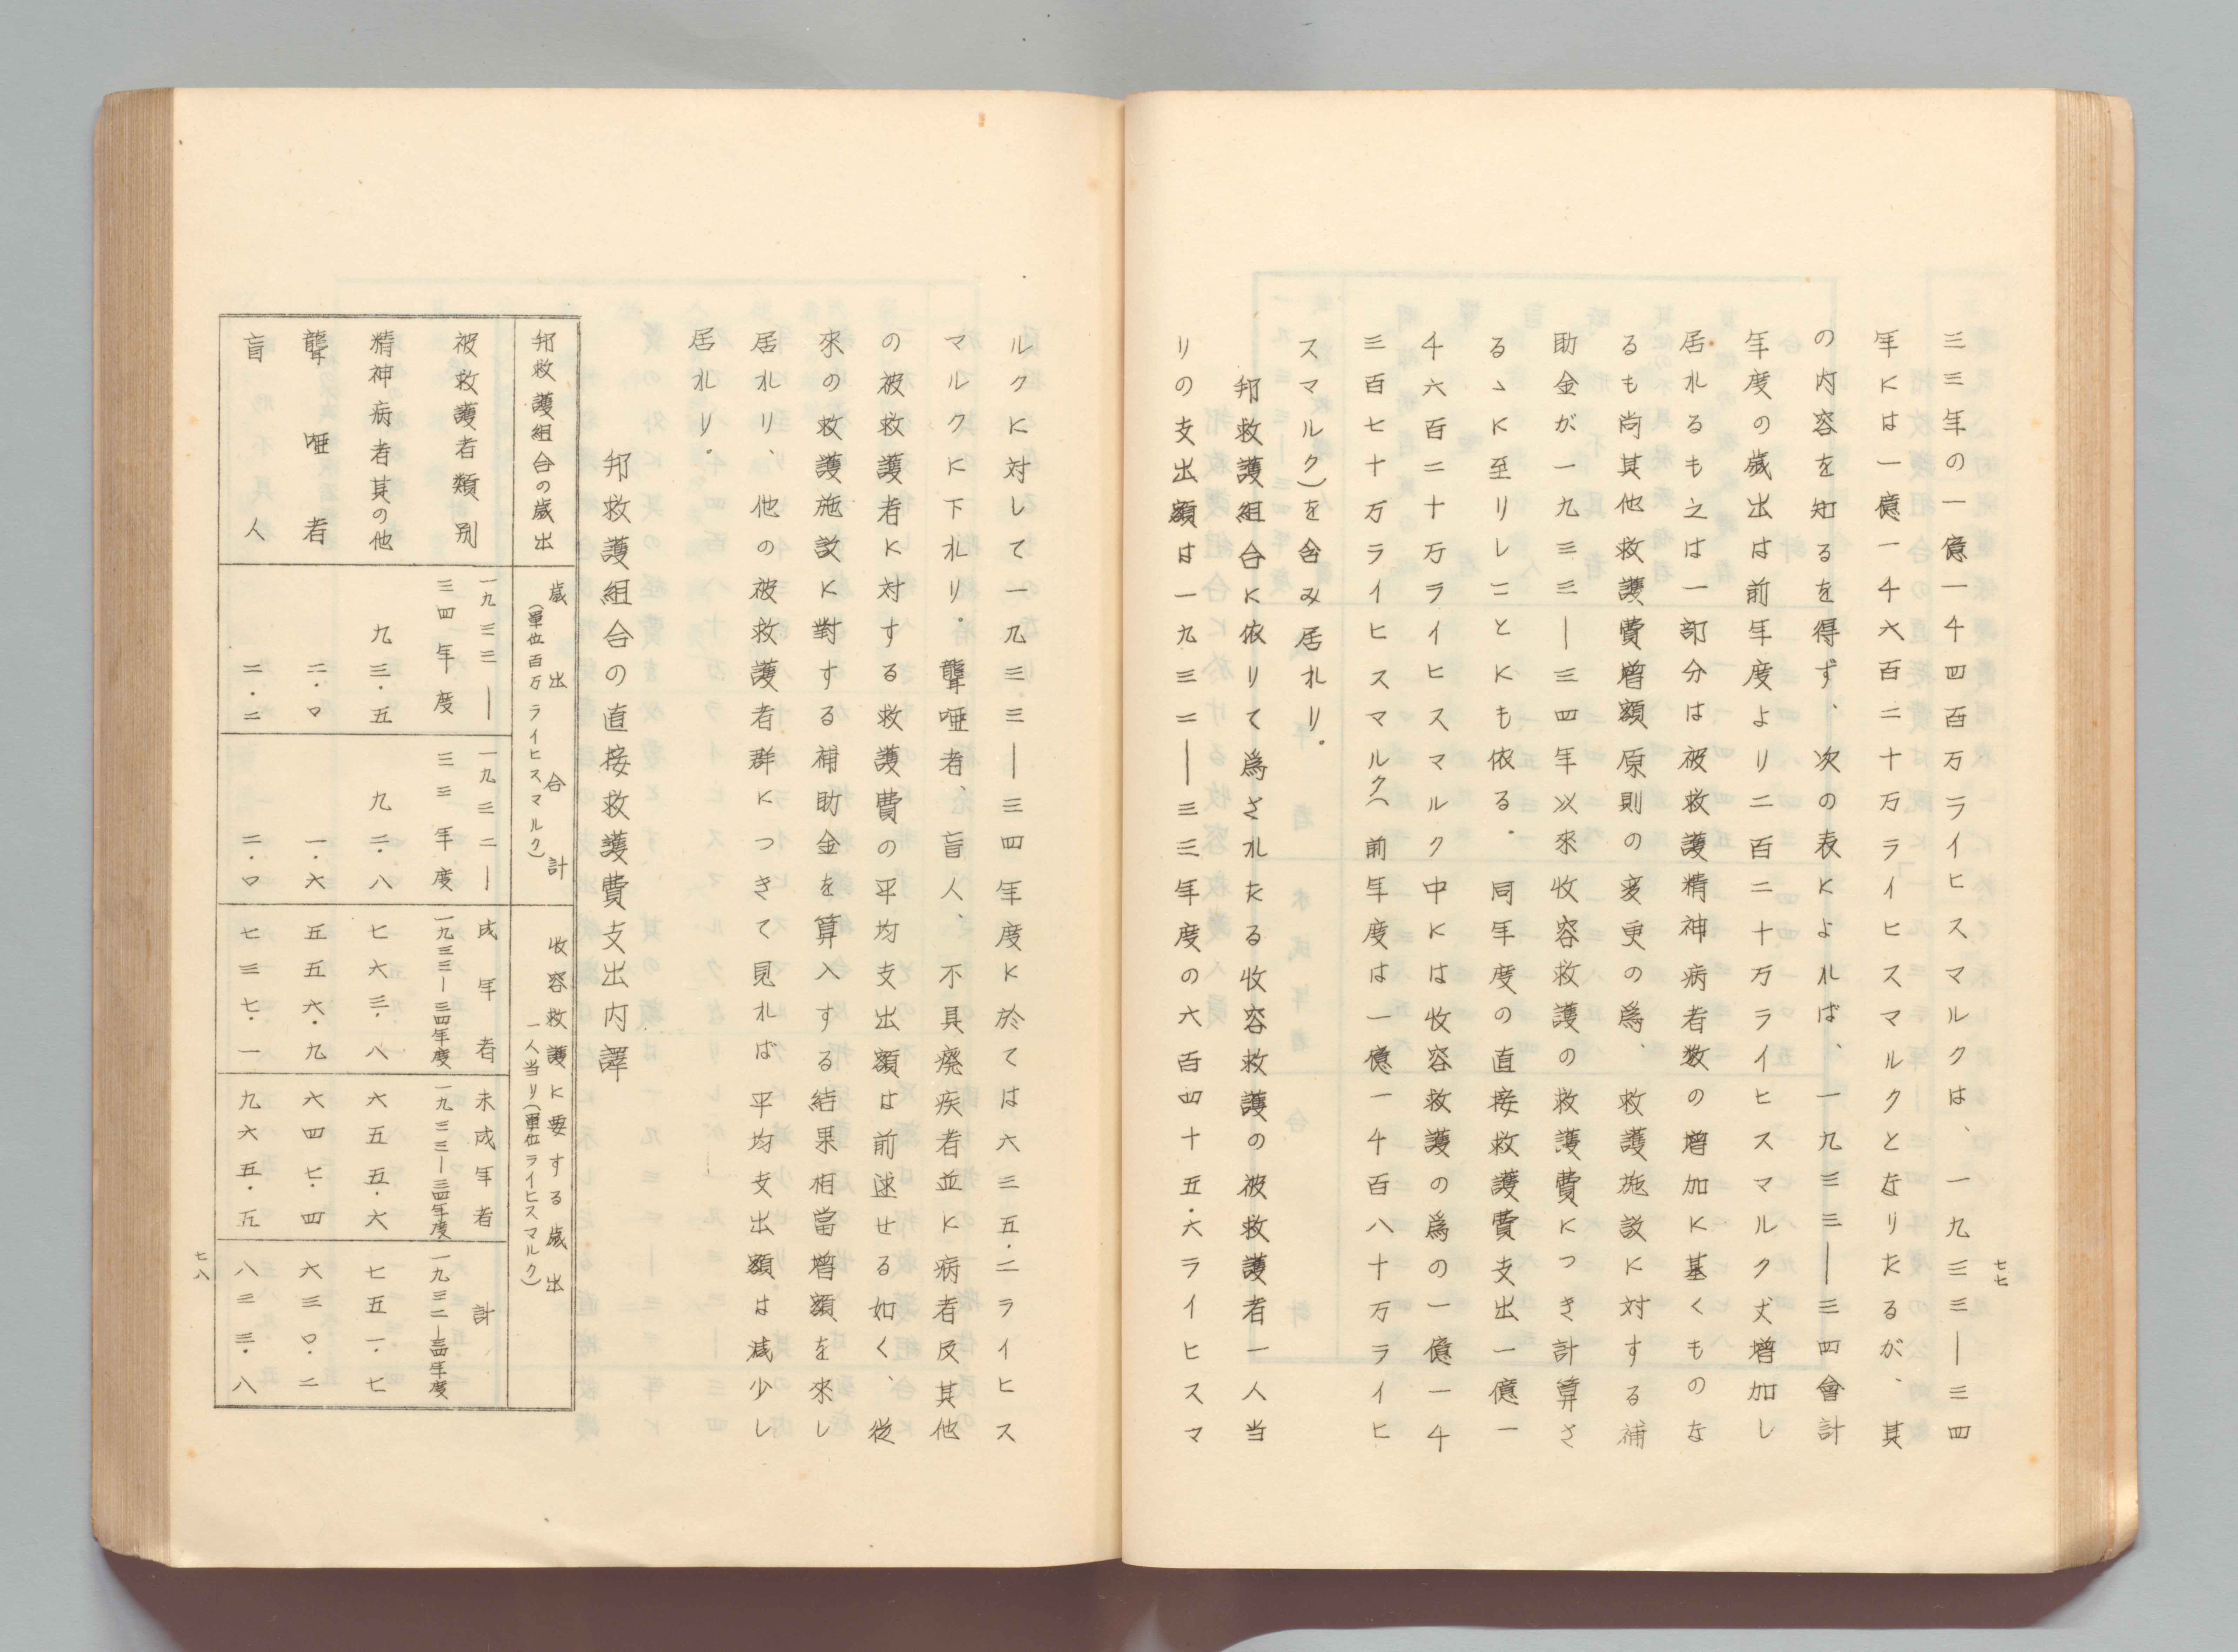 三三年の一億一千四百万ライヒスマルクは、一九三三―三四
年には一億一千六百二十万ライヒスマルクとなりたるが、其
の内容を知るを得ず、次の表によれば、一九三三―三四會計
年度の歳出は前年度より二百二十万ライヒスマルク丈増加し
居れるも之は一部分は被救護精神病者数の増加に基くものな
るも尚其他救護費増額原則の変更の為、救護施設に対する補
助金が一九三三―三四年以來收容救護の救護費につき計算さ
るゝに至りしことにも依る。同年度の直接救護費支出一億一
千六百二十万ライヒスマルク中には收容救護の為の一億一千
三百七十万ライヒスマルク（前年度は一億一千百八十万ライヒ
スマルク）を含み居れり。
邦救護組合に依りて為されたる收容救護の被救護者一人当
りの支出額は一九三二―三三年度の六百四十五・六ライヒスマ
七七
ルクに対して一九三三―三四年度に於ては六三五・二ライヒス
マルクに下れり。聾唖者、盲人、不具癈疾者並に病者及其他
の被救護者に対する救護費の平均支出額は前述せる如く、従
來の救護施設に對する補助金を算入する結果相當増額を來し
居れり、他の被救護者群につきて見れば平均支出額は減少し
居れり。
邦救護組合の直接救護費支出内譯
邦救護組合の歳出
歳出合計
（單位百万ライヒスマルク）
收容救護に要する歳出
一人当り（單位ライヒスマルク）
被救護者類別
一九三三―
三四年度
一九三二―
三三年度
成年者
一九三三―三四年度
未成年者
一九三三―三四年度
計
一九三二―三四年度
精神病者其の他
九三・五
九二・八
七六三・八
六五五・六
七五一・七
聾唖者
二・〇
一・六
五五六・九
六四七・四
六三〇・二
盲人
二・二
二・〇
七三七・一
九六五・五
八三三・八
七八